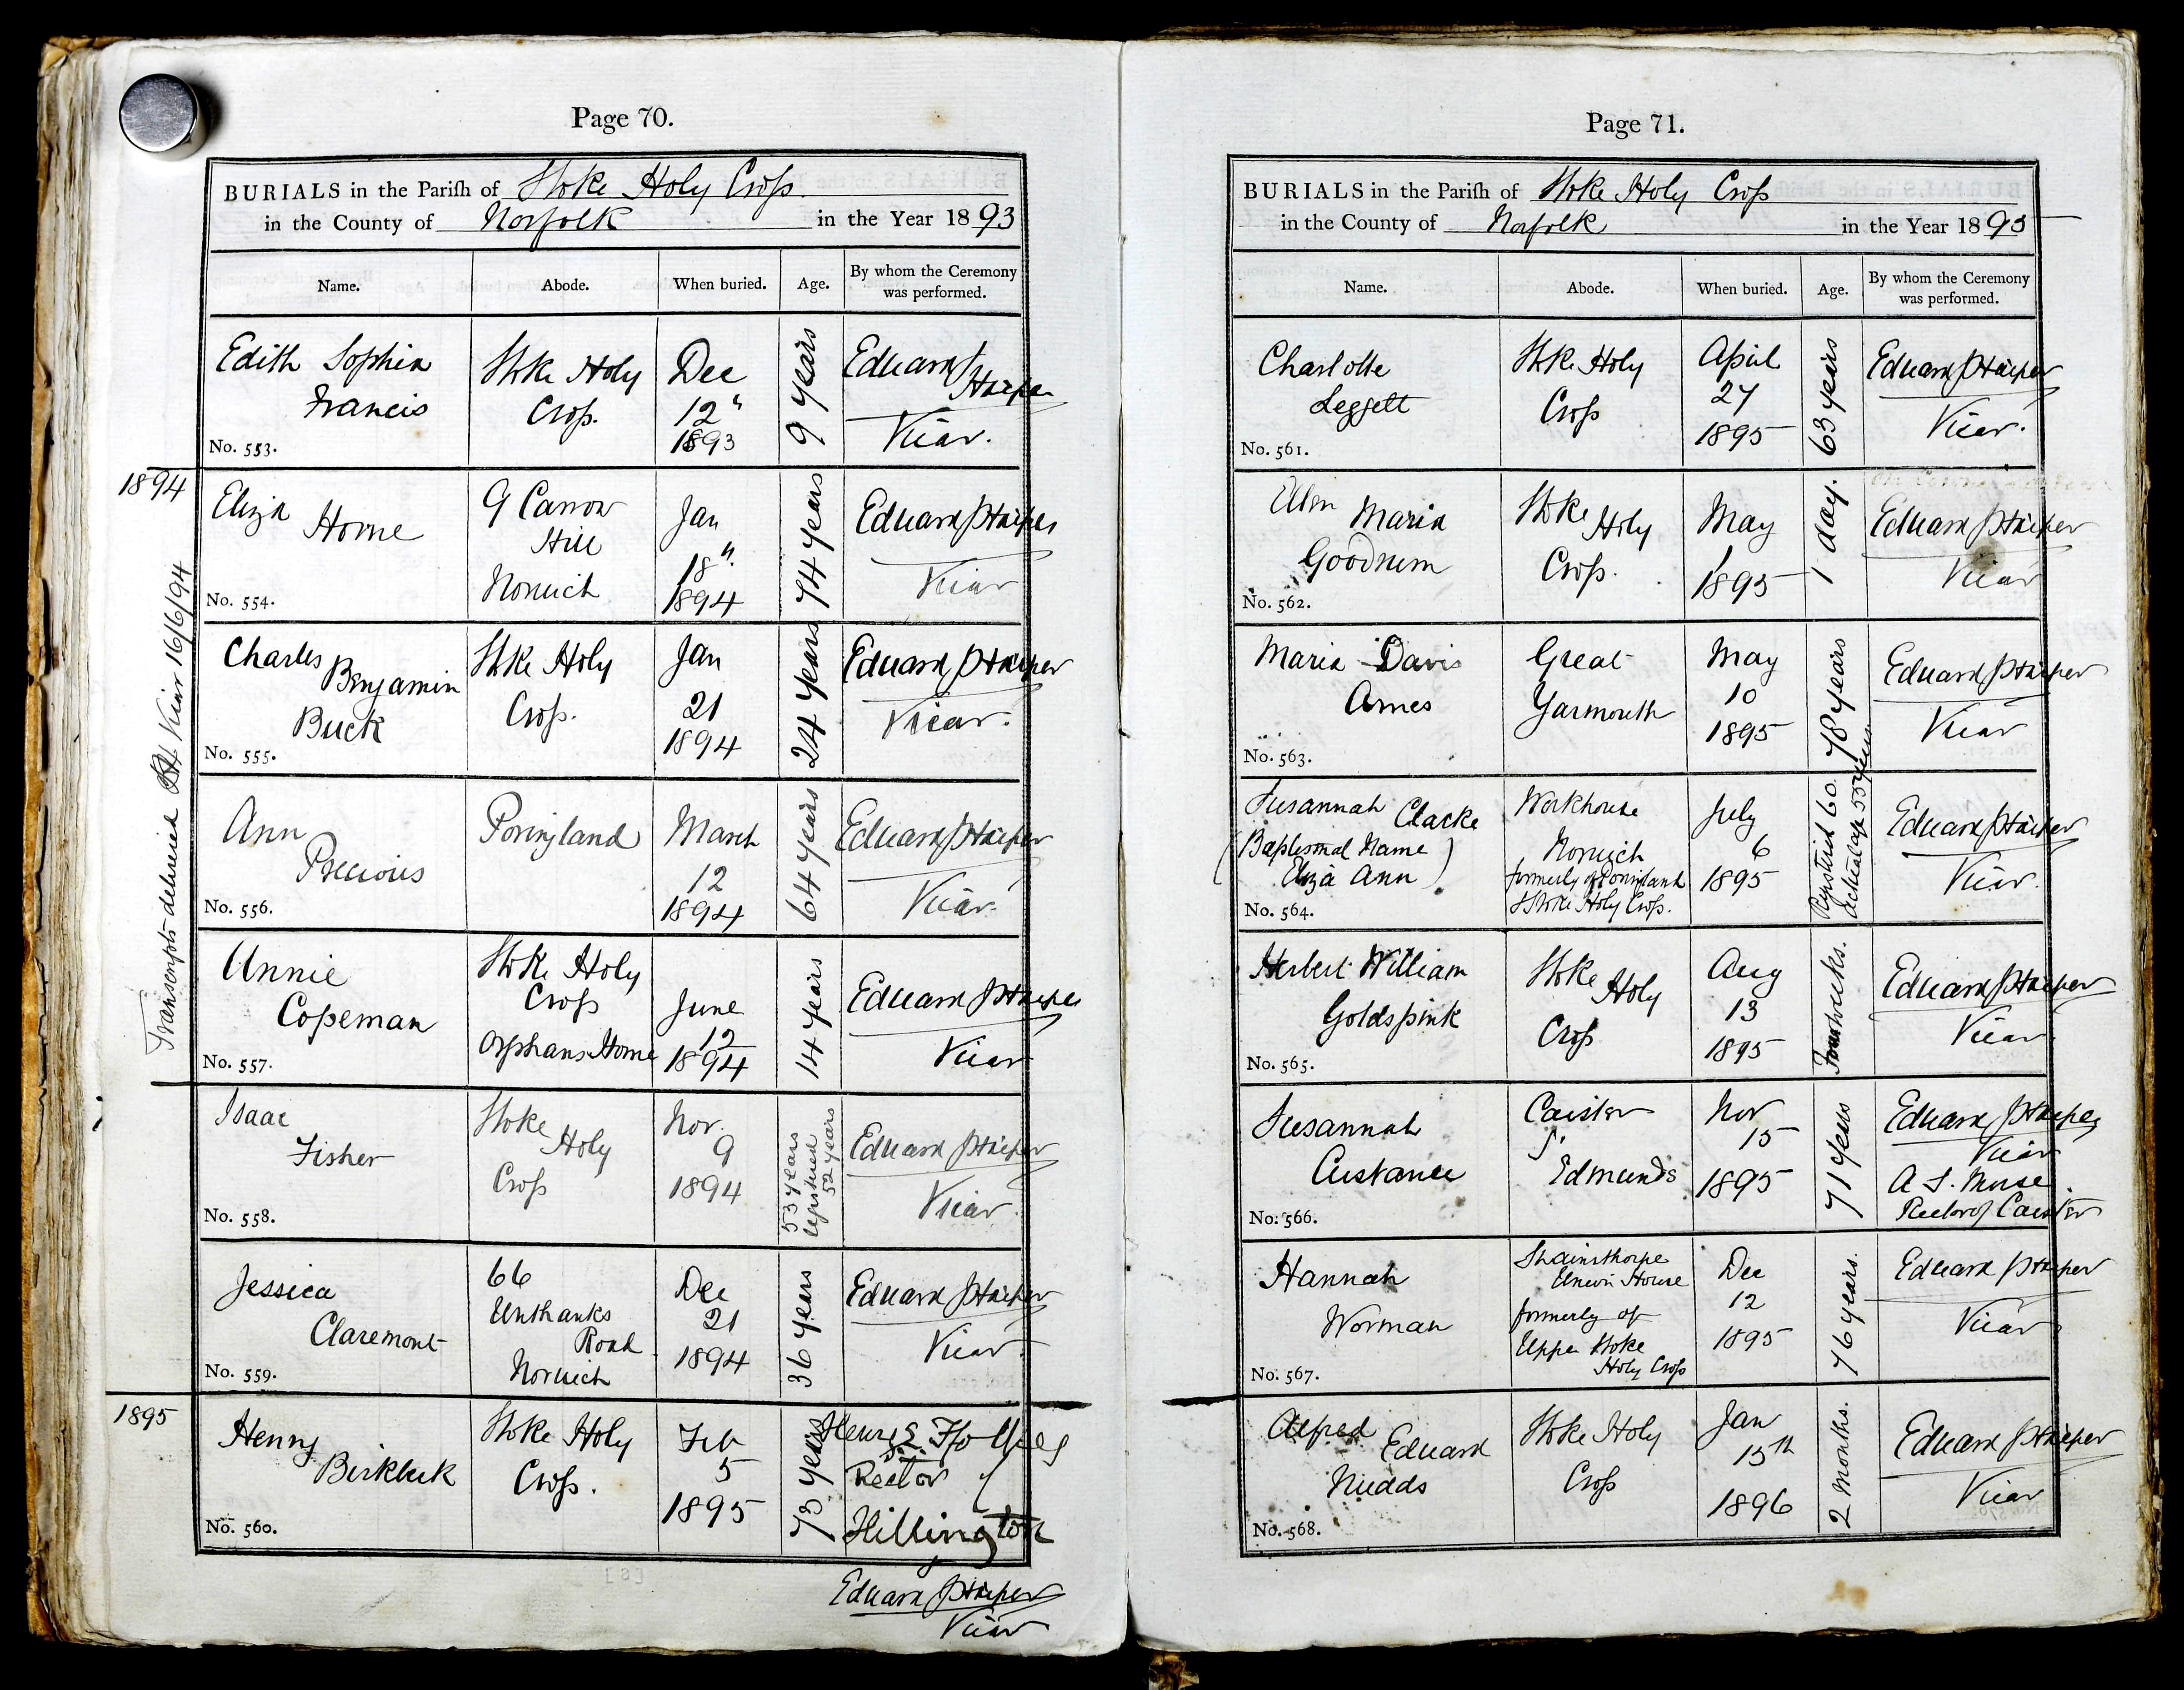 Page 70.
BURIALS in the Parish of Stoke Holy Cross
in the County of Norfolk in the Year 1893
Name. Abode. When buried. Age. By whom the Ceremony was performed.
Edith Sophia Francis
No. 553.
Stoke Holy Cross.
Dec 12" 1893
9 years
Edward Harper
Vicar.
1894
Eliza Horne
No. 554.
9 Carrow Hill Norwich
Jan 18" 1894
74 years
Edward J Harper
Vicar
Charles Benjamin Buck
No. 555.
Stoke Holy Cross.
Jan 21 1894
24 years
Edward J Harper
Vicar.
Transcripts delivered Vicar 16/6/94
Ann Precious
No. 556.
Poringland
March 12 1894
64 years
Edward J Harper
Vicar.
Annie Copeman
No. 557.
Stoke Holy Cross
Orphans Home
June 12 1894
14 years
Edward J Harper
Vicar
Isaac Fisher
No. 558.
Stoke Holy Cross
Nov. 9 1894
53 years
registered
52 years
Edward J Harper
Vicar.
Jessica Claremont
No. 559.
66
Unthanks
Road
Norwich
Dec 21 1894
36 years
Edward J Harper
Vicar.
1895
Henry Birkbeck
No. 560.
Stoke Holy Cross.
Feb 5 1895
73 years
Henry E. Ffolkes
Rector of
Hillington
Edward J Harper
Vicar
Page 71.
BURIALS in the Parish of Stoke Holy Cross
in the County of Norfolk in the Year 1895
Name. Abode. When buried. Age. By whom the Ceremony was performed.
Charlotte Leggett
No. 561.
Stoke Holy Cross
April 27 1895
63 years
Edward J Harper
Vicar.
Ellen Maria Goodrum
No. 562.
Stoke Holy Cross.
May 1 1895
1 day.
Edward J Harper
Vicar
Maria Davis Ames
No. 563.
Great Yarmouth
May 10 1895
78 years
Edward J Harper
Vicar
Susannah Clarke
(Baptismal Name
Eliza Ann).
No. 564.
Workhouse
Norwich
formerly of Poringland
& Stoke Holy Cross.
July 6 1895
Registered 60.
actual age 55 years
Edward J Harper
Vicar.
Herbert William Goldspink
No. 565.
Stoke Holy Cross
Aug 13 1895
Four weeks.
Edward J Harper
Vicar.
Susannah Custance
No. 566.
Caister St Edmunds
Nov 15 1895
71 years
Edward J Harper
Vicar
A. S. Muse.
Rector of Caister
Hannah Worman
No. 567.
Swainsthorpe
Union House
formerly of
Upper Stoke
Holy Cross
Dec 12 1895
76 years.
Edward J Harper
Vicar
Alfred Edward Nudds
No. 568.
Stoke Holy Cross
Jan 15th 1896
2 months.
Edward J Harper
Vicar